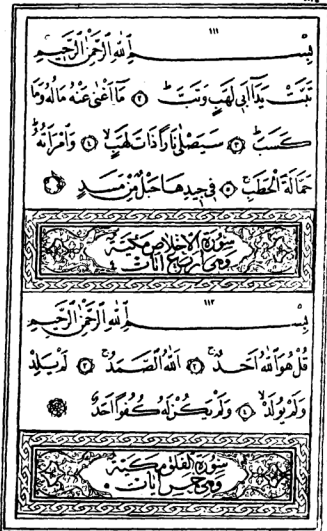 ١١١
بِسْمِ اللهِ الرَّحْمٰنِ الرَّحِيمِ
تَبَّتْ يَدَا اَبِى لَهَبٍ وَتَبَّ ۝٢ مَا اَغْنٰى عَنْهُ مَالُهُ وَمَا
كَسَبَ ۝٣ سَيَصْلٰى نَارًا ذَاتَ لَهَبٍ ۝٤ وَامْرَاَتُهُ
حَمَّالَةَ الْحَطَبِ ۝٥ فِى جِيدِهَا حَبْلٌ مِنْ مَسَدٍ
سورة الاخلاص مكية
وهي اربع آيات
١١٢
بِسْمِ اللهِ الرَّحْمٰنِ الرَّحِيمِ
قُلْ هُوَ اللهُ اَحَدٌ ۝٢ اَللهُ الصَّمَدُ ۝٣ لَمْ يَلِدْ
وَلَمْ يُولَدْ ۝٤ وَلَمْ يَكُنْ لَهُ كُفُوًا اَحَدٌ
سورة الفلق مكية
وهي خمس آيات